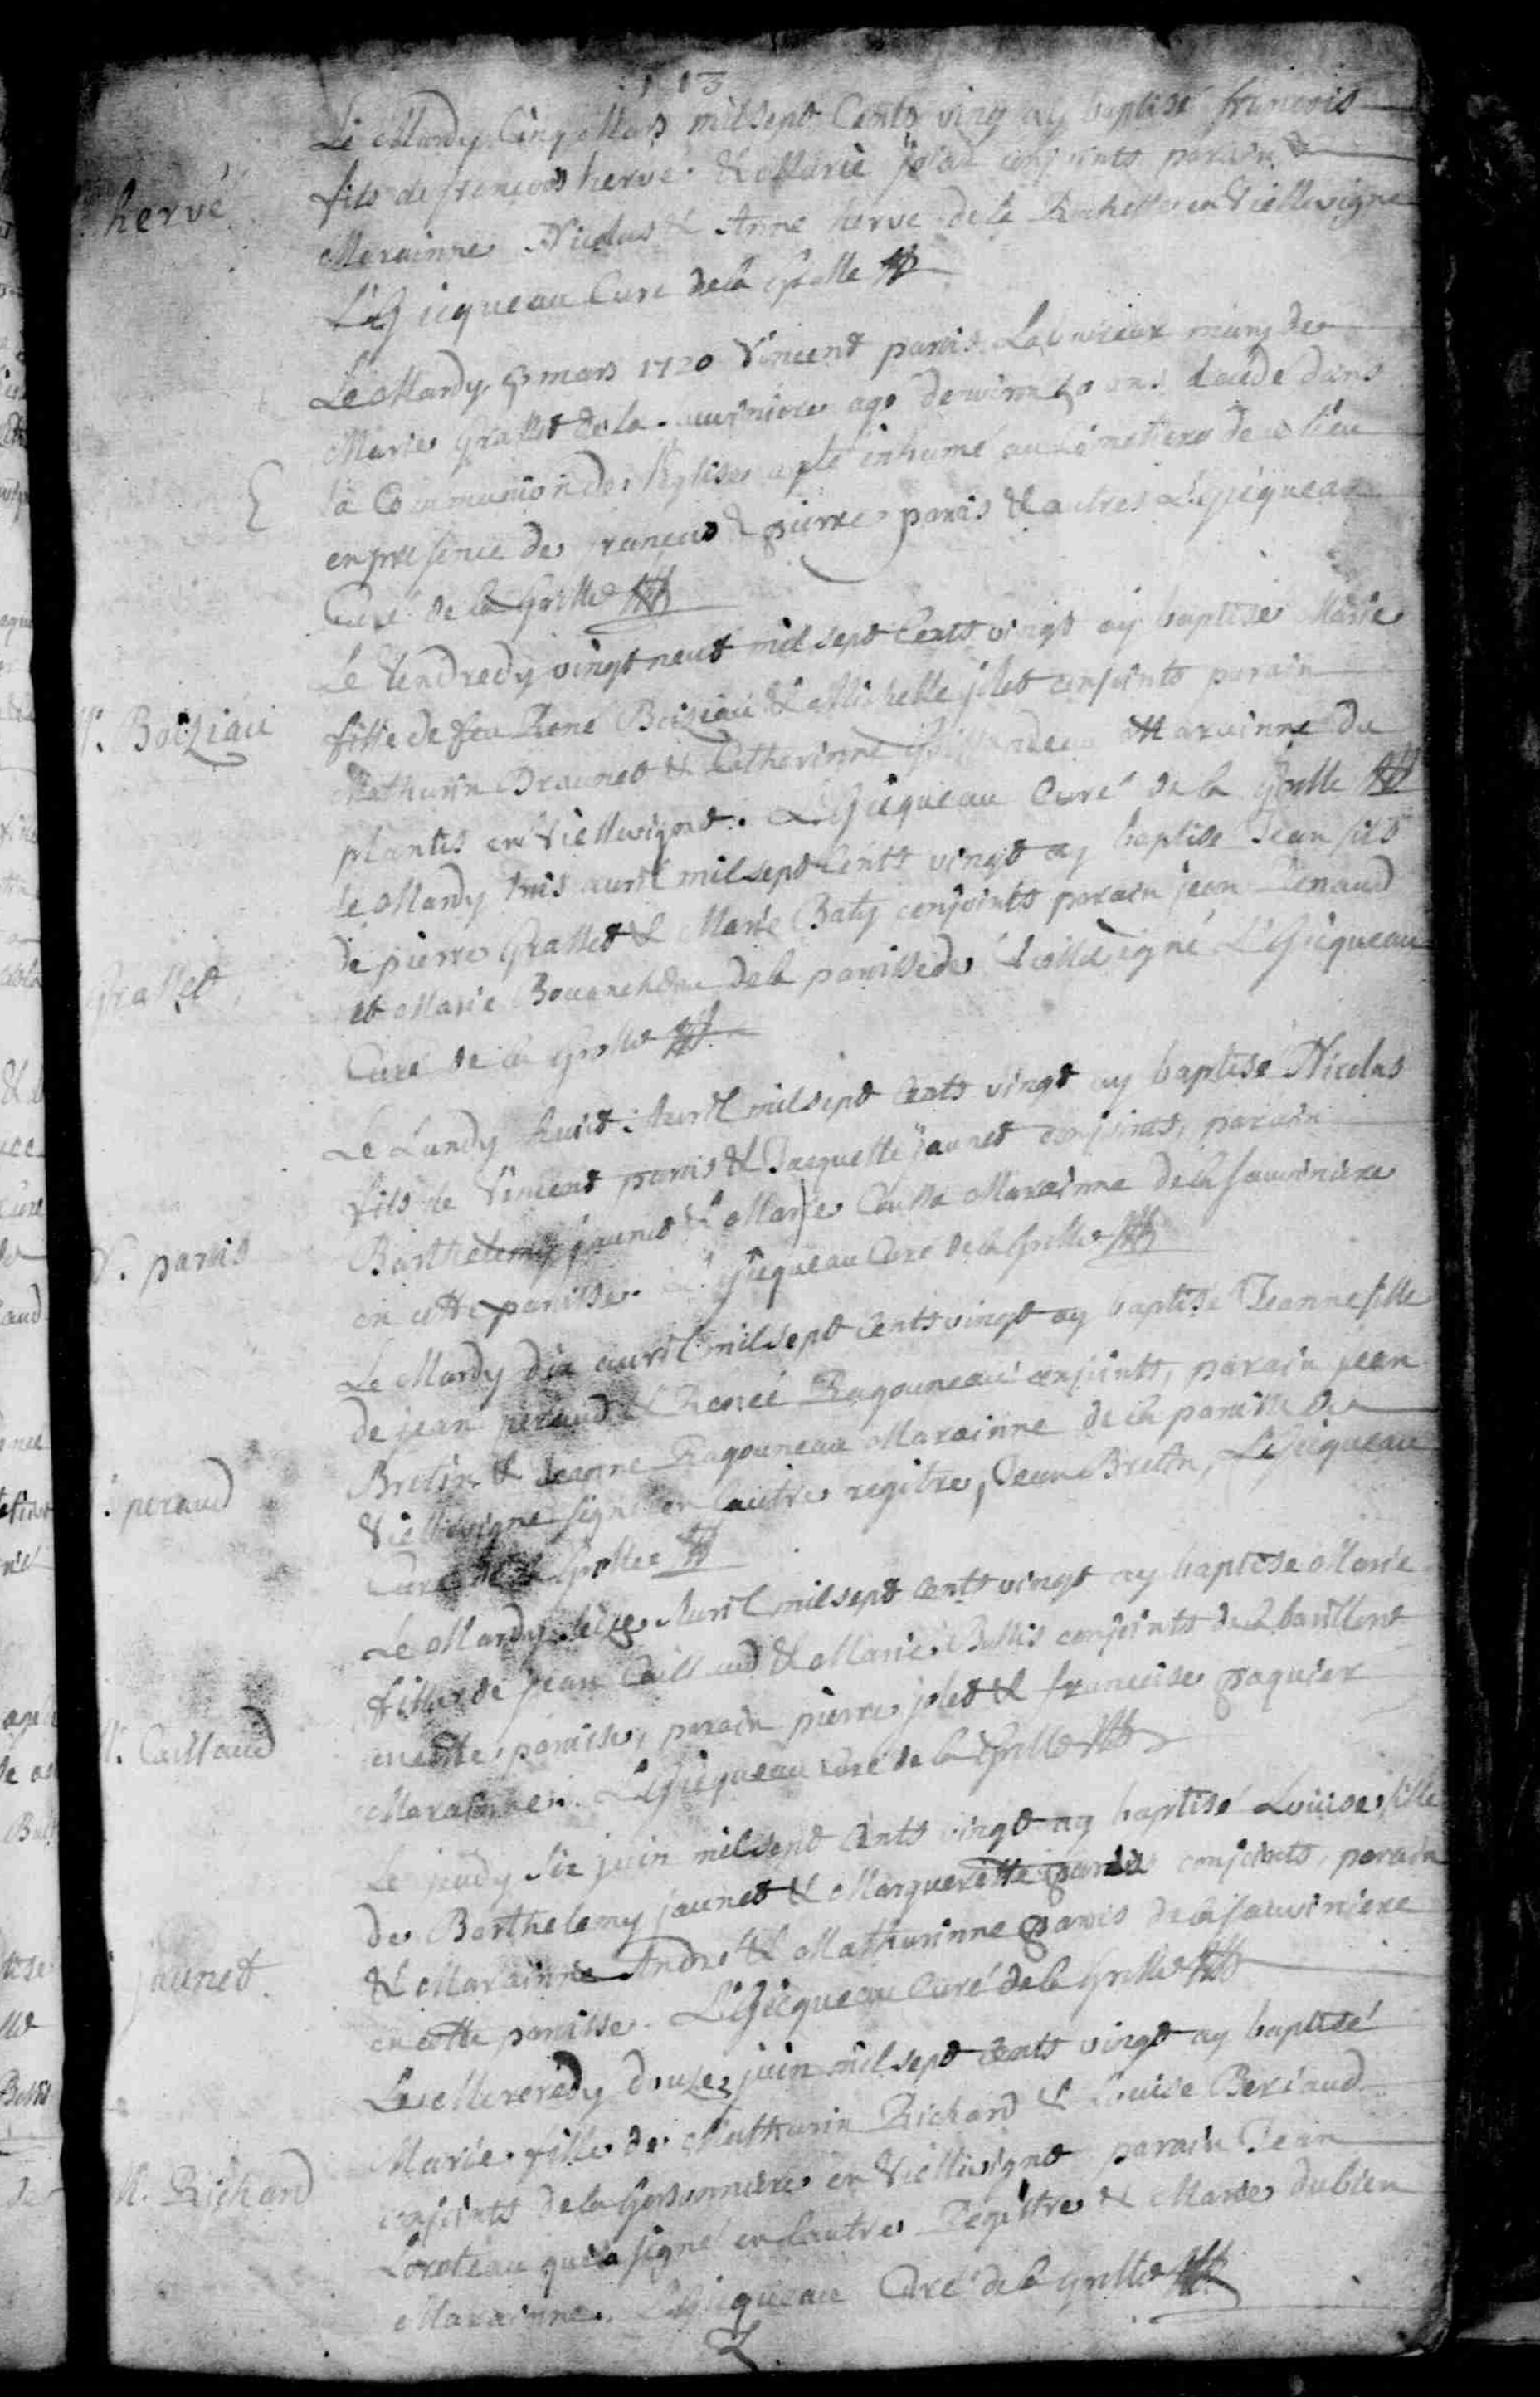 113
Le Mardy Cinq Mars mil sept Cents ving ay baptisé francois
hervé
fils de francois hervé & Marie jolat conjoints parain &
Marainne Nicolas & Anne hervé de la Rochelle en Viellevigne
L'Gicqueau Curé de la Grolle
Le Mardy 5 mars 1720 Vincent parois Laboureur mary de
Marie Grasset de la auviniere agé denviron 60 ans décédé dans
la Communion de l'Eglise a esté inhumé au Cimetiere de ce lieu
en presence de rancois & pierre parois & autres L'Gicqueau
Curé de la Grolle
Le Vendredy vingt neuf mil sept Cents vingt ay baptisé Marie
Boiziau
fille de feu René Boiziau & Michelle jolet conjoints parain
Mathurin Draunet & Catherinne Marainne du
plantis en Viellevigne. L'Gicqueau Curé de la Grolle
le Mardy trois avril mil sept Cents vingt ay baptisé Jean fils
Grasset
de pierre Grasset & Marie Baty conjoints parain jean Renaud
et Marie de la paroisse de L'Gicqueau
Curé de la Grolle
Le Lundy huict Avril mil sept Cents vingt ay baptisé Nicolas
V. parois
fils de Vincent parois & Jacquette jaunet conjoints, parain
Barthelemy jaunet & Marie Marainne de la Sauviniere
en cette paroisse. L'Gicqueau Curé de la Grolle
Le Mardy dix avril mil sept Cents vingt ay baptisé Jeanne fille
peraud
de jean peraud & Renée Ragouneau conjoints, parain jean
Bretin & Jeanne Ragouneau Marainne de la paroisse de
Viellevigne signé en l'autre regitre, Jean Bretin, L'Gicqueau
Curé de la Grolle
Le Mardy seize Avril mil sept Cents vingt ay baptisé Marie
Caillaud
fille de jean Caillaud & Marie conjoints de la
en cette paroisse, parain pierre jolet & francoise paquier
Marainne. L'Gicqueau Curé de la Grolle
Le jeudy six juin mil sept Cents vingt ay baptisé Louise fille
jaunet
de Barthelemy jaunet & Margueritte parois conjoints, parain
& Marainne André & Mathurinne parois de la Sauviniere
en cette paroisse. L'Gicqueau Curé de la Grolle
Le Mercredy douze juin mil sept Cents vingt ay baptisé
M. Richard
Marie fille de Mathurin Richard & Louise Beriaud
conjoints de la en Viellevigne parain Jean
Loreteau qui a signé en l'autre Regittre & Marie dubien
Marainne. L'Gicqueau Curé de la Grolle